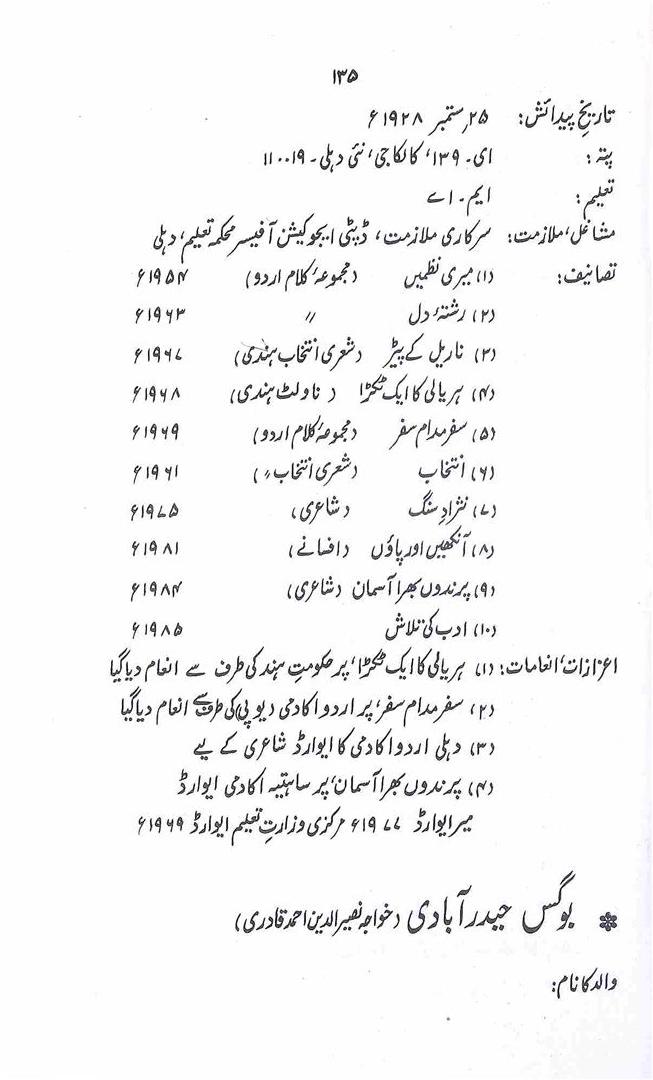 ۱۳۵
تاریخِ پیدائش: ۲۵؍ستمبر ۱۹۲۸ء
پتہ: ای۔ ۱۳۹، کالکاجی، نئی دہلی۔ ۱۱۰۰۱۹
تعلیم: ایم۔ اے
مشاغل، ملازمت: سرکاری ملازمت، ڈپٹی ایجوکیشن آفیسر محکمہ تعلیم، دہلی
تصانیف: (۱) میری نظمیں (مجموعۂ کلام اردو) ۱۹۵۴ء
(۲) رشتۂ دل 〃 ۱۹۶۳ء
(۳) ناریل کے پیڑ (شعری انتخاب ہندی) ۱۹۶۷ء
(۴) ہریالی کا ایک ٹکڑا (ناولٹ ہندی) ۱۹۶۸ء
(۵) سفر مدام سفر (مجموعۂ کلام اردو) ۱۹۶۹ء
(۶) انتخاب (شعری انتخاب 〃) ۱۹۶۱ء
(۷) نژادِ سنگ (شاعری) ۱۹۷۵ء
(۸) آنکھیں اور پاؤں (افسانے) ۱۹۸۱ء
(۹) پرندوں بھرا آسمان (شاعری) ۱۹۸۴ء
(۱۰) ادب کی تلاش ۱۹۸۵ء
اعزازات، انعامات: (۱) ہریالی کا ایک ٹکڑا، پر حکومتِ ہند کی طرف سے انعام دیا گیا
(۲) سفر مدام سفر، پر اردو اکادمی (یوپی) کی طرف سے انعام دیا گیا
(۳) دہلی اردو اکادمی کا ایوارڈ شاعری کے لیے
(۴) پرندوں بھرا آسمان، پر ساہتیہ اکادمی ایوارڈ
میر ایوارڈ ۱۹۷۷ء مرکزی وزارتِ تعلیم ایوارڈ ۱۹۶۹ء
* بوگس حیدرآبادی (خواجہ نصیرالدین احمد قادری)
والد کا نام: